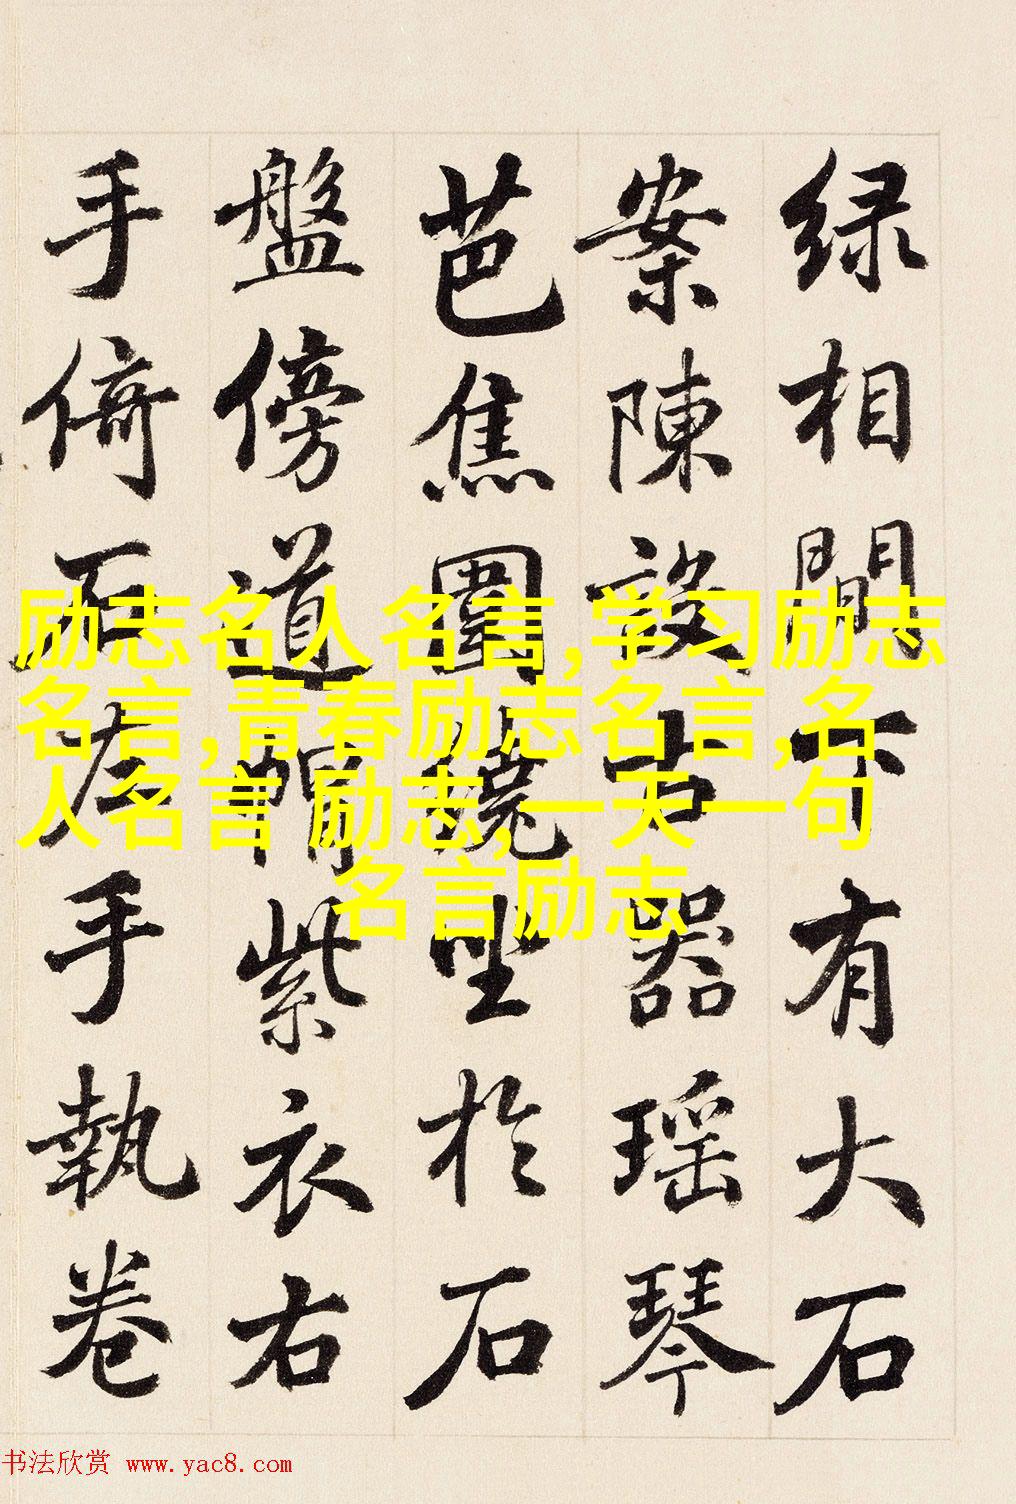 绿相間下有大石
案陳設古器瑶琴
芭焦圍繞坐於石
盤傍道帽紫衣右
手倚石左手執卷
励志名人名言,学习励志
名言,青春励志名言,名
人名言 励志,一天一句
名言励志
书法欣赏 www.yac8.com